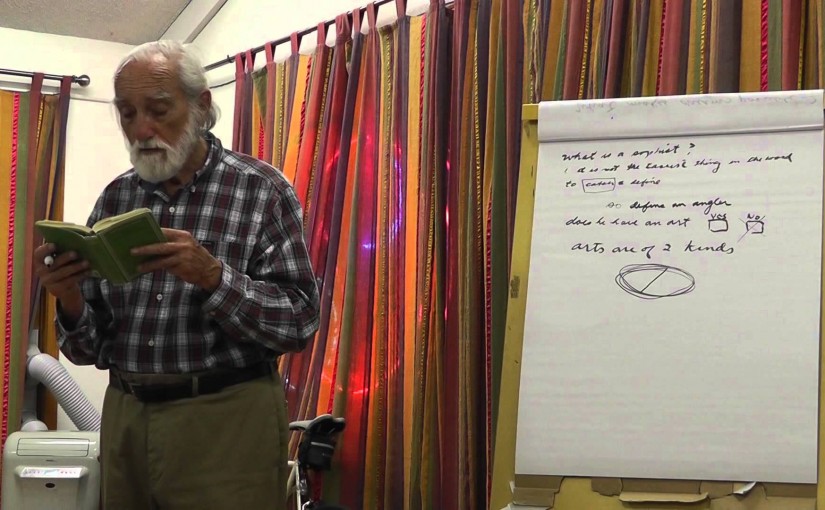 What is a sophist?
it is not the easiest thing in the world
to catch & define
so define an angler
does he have an art YES NO
arts are of 2 kinds